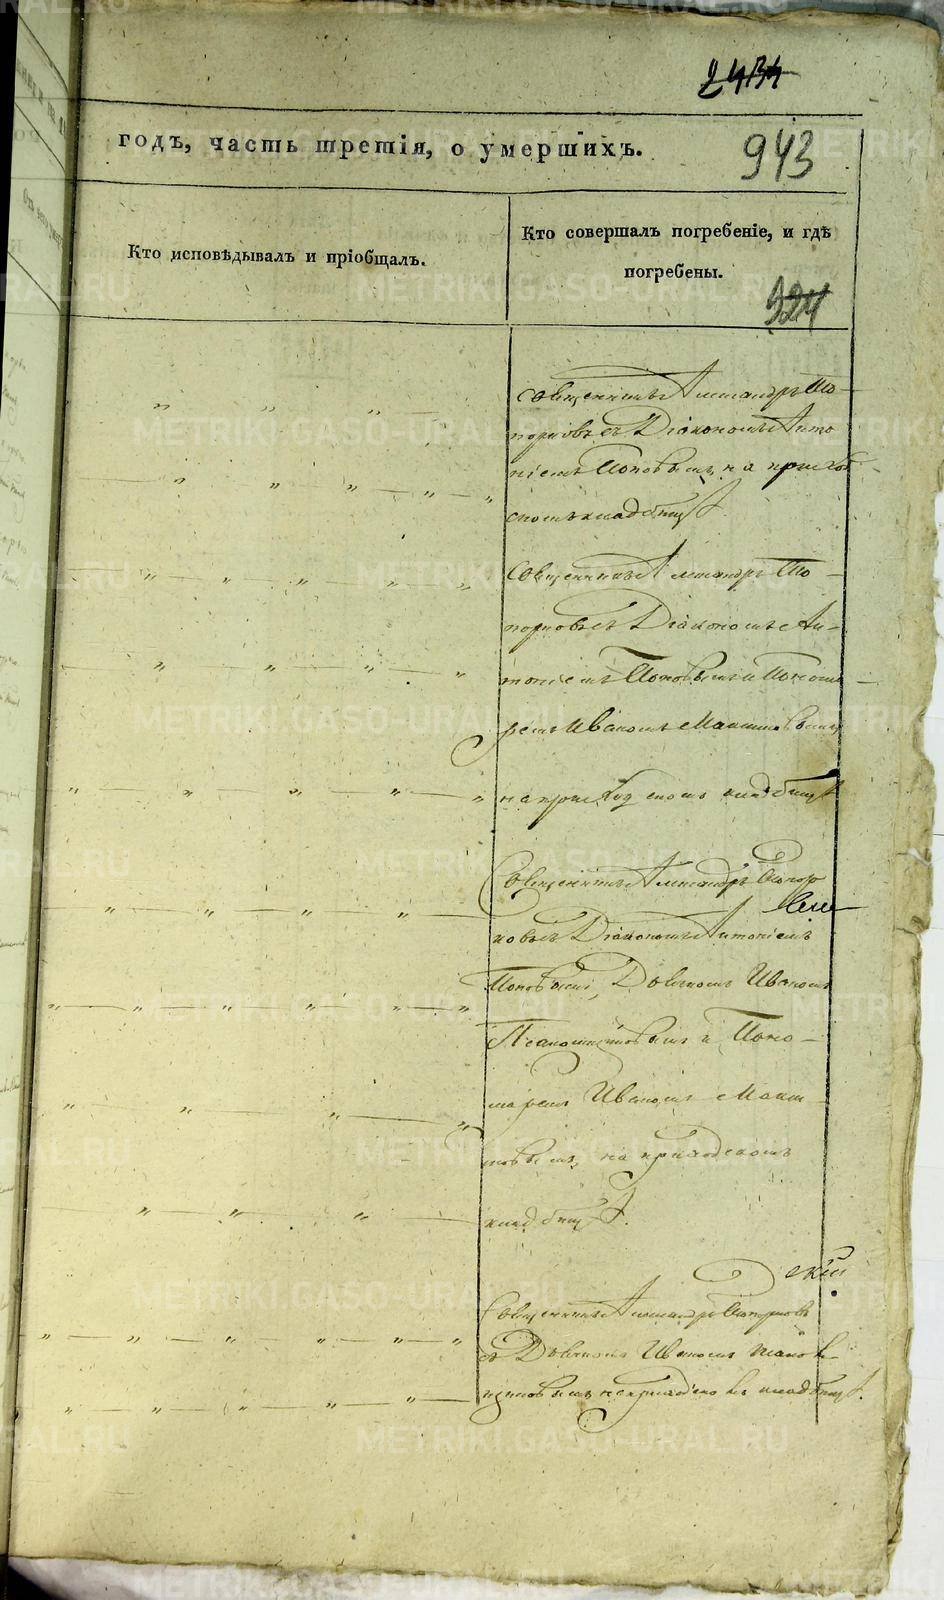 2434
годъ, часть третія, о умершихъ.
943
Кто исповѣдывалъ и пріобщалъ.
Кто совершалъ погребеніе, и гдѣ
погребены.
924
Священникъ Александръ То-
порковъ съ Діакономъ Анто
ніемъ Поповымъ, на приход
скомъ кладбищѣ
Священникъ Александръ То-
порковъ съ Діакономъ Ан-
тоніемъ Поповымъ и Поном
ремъ Иваномъ
на приходскомъ кладбищѣ
Священникъ Александръ Топор
ковъ съ Діакономъ Антоніемъ
Поповымъ, Дьячкомъ Иваномъ
и Поно-
маремъ Иваномъ
на приходскомъ
кладбищѣ.
скій
Священникъ Александръ Топорковъ
съ Дьячкомъ Иваномъ
кладбищѣ.
METRIKI.GASO-URAL.RU